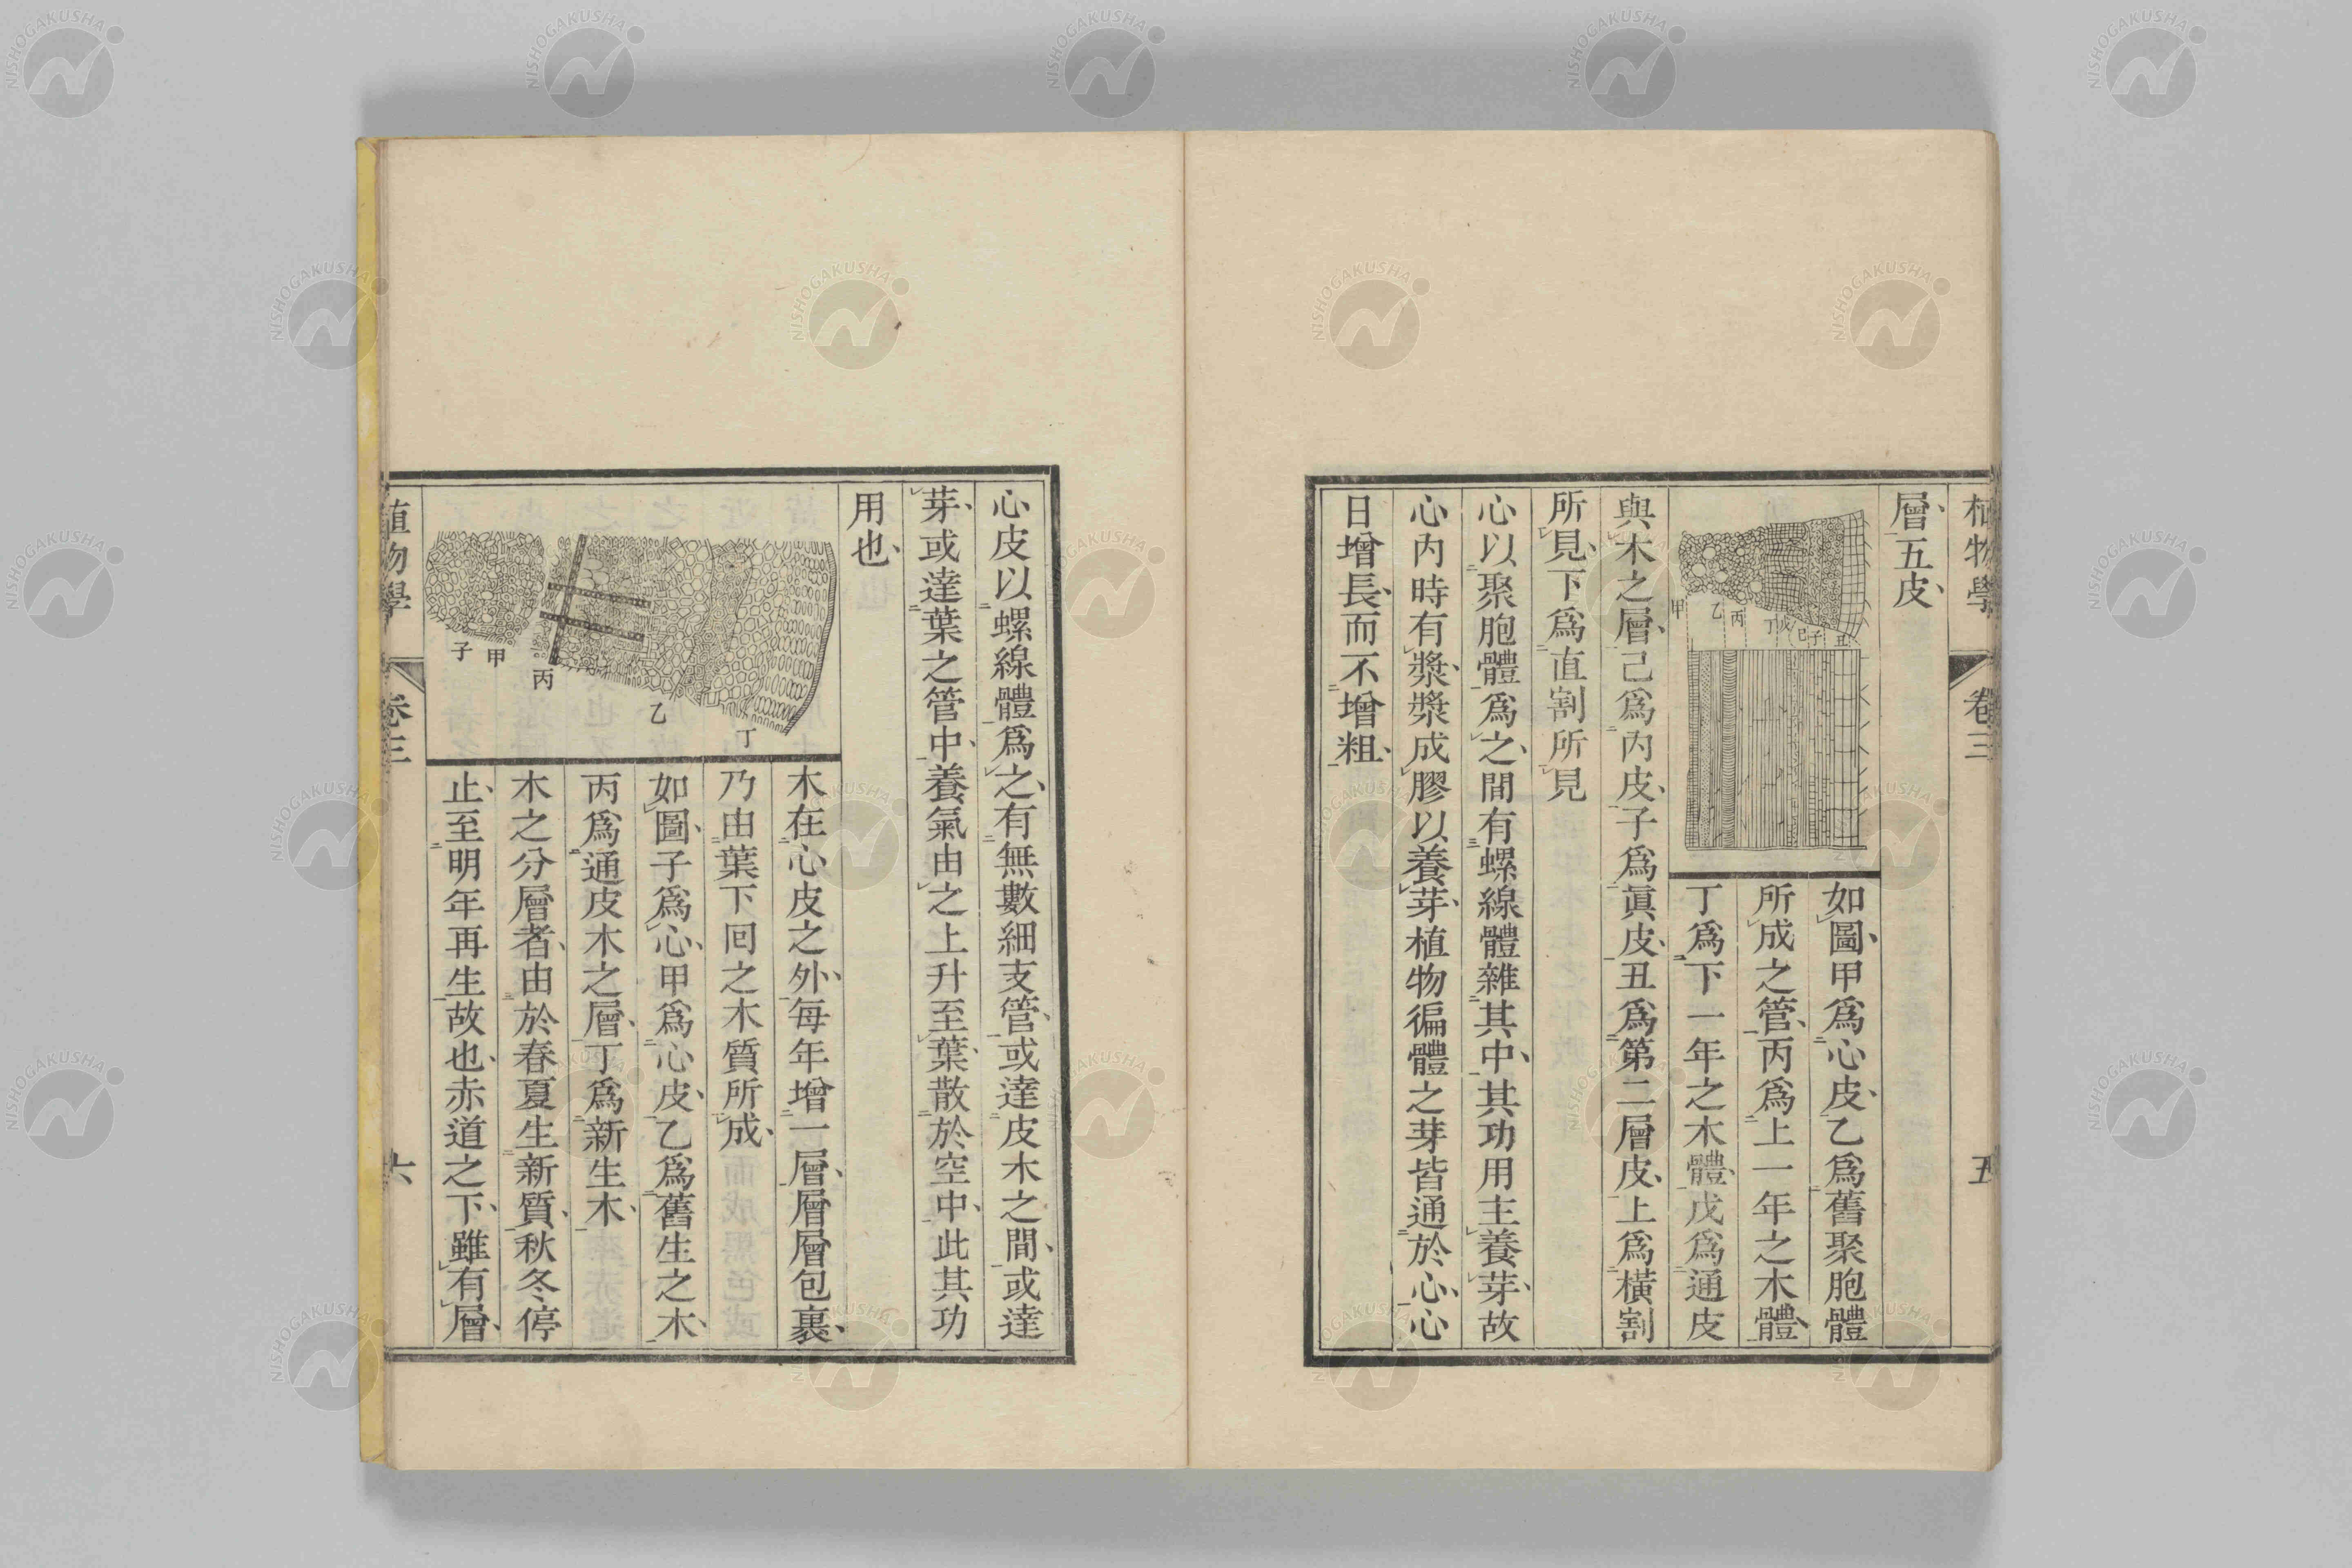 植物學 卷三 五
層、五皮、
甲 乙 丙 丁 戊 己 子 丑
如圖、甲爲心皮、乙爲舊聚胞體
所成之管、丙爲上一年之木體、
丁爲下一年之木體、戊爲通皮
與木之層、己爲內皮、子爲眞皮、丑爲第二層皮、上爲橫割
所見、下爲直割所見
心以聚胞體爲之、間有螺線體雜其中、其功用主養芽、故
心內時有漿、漿成膠以養芽、植物徧體之芽皆通於心、心
日增長、而不增粗、
心皮以螺線體爲之、有無數細支管、或達皮木之間、或達
芽、或達葉之管中、養氣由之上升至葉、散於空中、此其功
用也、
子 甲 丙 乙 丁
木在心皮之外、每年增一層、層層包裹、
乃由葉下回之木質所成、
如圖、子爲心、甲爲心皮、乙爲舊生之木、
丙爲通皮木之層、丁爲新生木、
木之分層者、由於春夏生新質、秋冬停
止、至明年再生故也、赤道之下、雖有層、
植物學 卷三 六
NISHOGAKUSHA